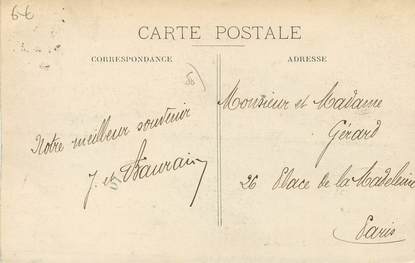 6-6
CARTE POSTALE
CORRESPONDANCE
ADRESSE
50
Monsieur et Madame
Gérard
26 Place de la Madeleine
Paris
Notre meilleur souvenir
J. et Baurain